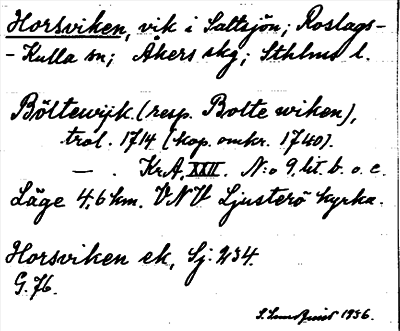 Horsviken, vik i Saltsjön; Roslags-
-Kulla sn; Åkers skg; Sthlms l.
Böltewijk (resp. Bolte wiken),
trol. 1714 (kop. omkr. 1740).
— . Kr.A. XXII. N:o 9. lit. b. o. c.
Läge 4,6 km. VNV Ljusterö kyrka.
Horsviken ek, Sj. 234.
G. 76.
1936.